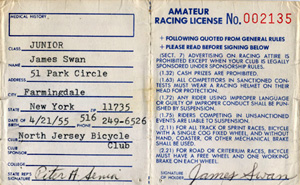 MEDICAL HISTORY
CLASS
JUNIOR
NAME
James Swan
51 Park Circle
Farmingdale
New York 11735
4/21/55 516 249-6526
North Jersey Bicycle
Club
STATE REP'S
SIGNATURE
AMATEUR
RACING LICENSE No. 002135
+ FOLLOWING QUOTED FROM GENERAL RULES +
+ PLEASE READ BEFORE SIGNING BELOW +
(SECT. 7) ADVERTISING ON RACING ATTIRE IS
PROHIBITED EXCEPT WHEN YOUR CLUB IS
LEGALLY SPONSORED UNDER SPONSORSHIP RULES.
(1.32) CASH PRIZES ARE PROHIBITED.
(1.36) ALL CONTESTANTS IN SANCTIONED CONTESTS
MUST WEAR A RACING HELMET ON THE
HEAD FOR PROTECTION.
(1.27) ANY RIDER USING IMPROPER LANGUAGE
OR GUILTY OF IMPROPER CONDUCT SHALL BE
PUNISHED BY SUSPENSION.
(1.17) RIDERS COMPETING IN UNSANCTIONED
EVENTS ARE LIABLE TO SUSPENSION.
(2.19) FOR ALL TRACK OR SPRINT RACES, BICYCLE
WITH A SINGLE COG FIXED WHEEL, AND WITHOUT
BRAKES, COASTER HUB, OR OTHER ATTACHMENTS,
SHALL BE USED.
(2.21) FOR ROAD OR CRITERIUM RACES, BICYCLE
MUST HAVE A FREE WHEEL AND ONE WORKING
BRAKE ON EACH WHEEL.
SIGNATURE
OF HOLDER
James Swan